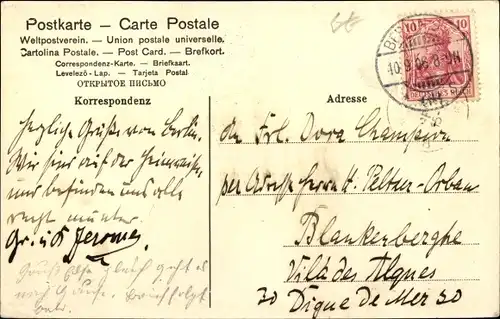 Postkarte – Carte Postale
Weltpostverein. – Union postale universelle.
Cartolina Postale. – Post Card. – Brefkort.
Correspondenz-Karte. – Briefkaart.
Levelező-Lap. – Tarjeta Postal
ОТКРЫТОЕ ПИСЬМО
Korrespondenz
Adresse
10
10
10.9.06. 8-9N
herzliche Grüße von Berlin.
Wir sind auf der Heimreise
und befinden uns alle
recht munter.
Gr. u. K Jeromes.
geht es
nach Hause. Brief folgt
An Frl. Dora Champion
per Adresse Herrn H. Peltzer-Orban
Blankenberghe
Villa des Algues
30 Digue de Mer 30